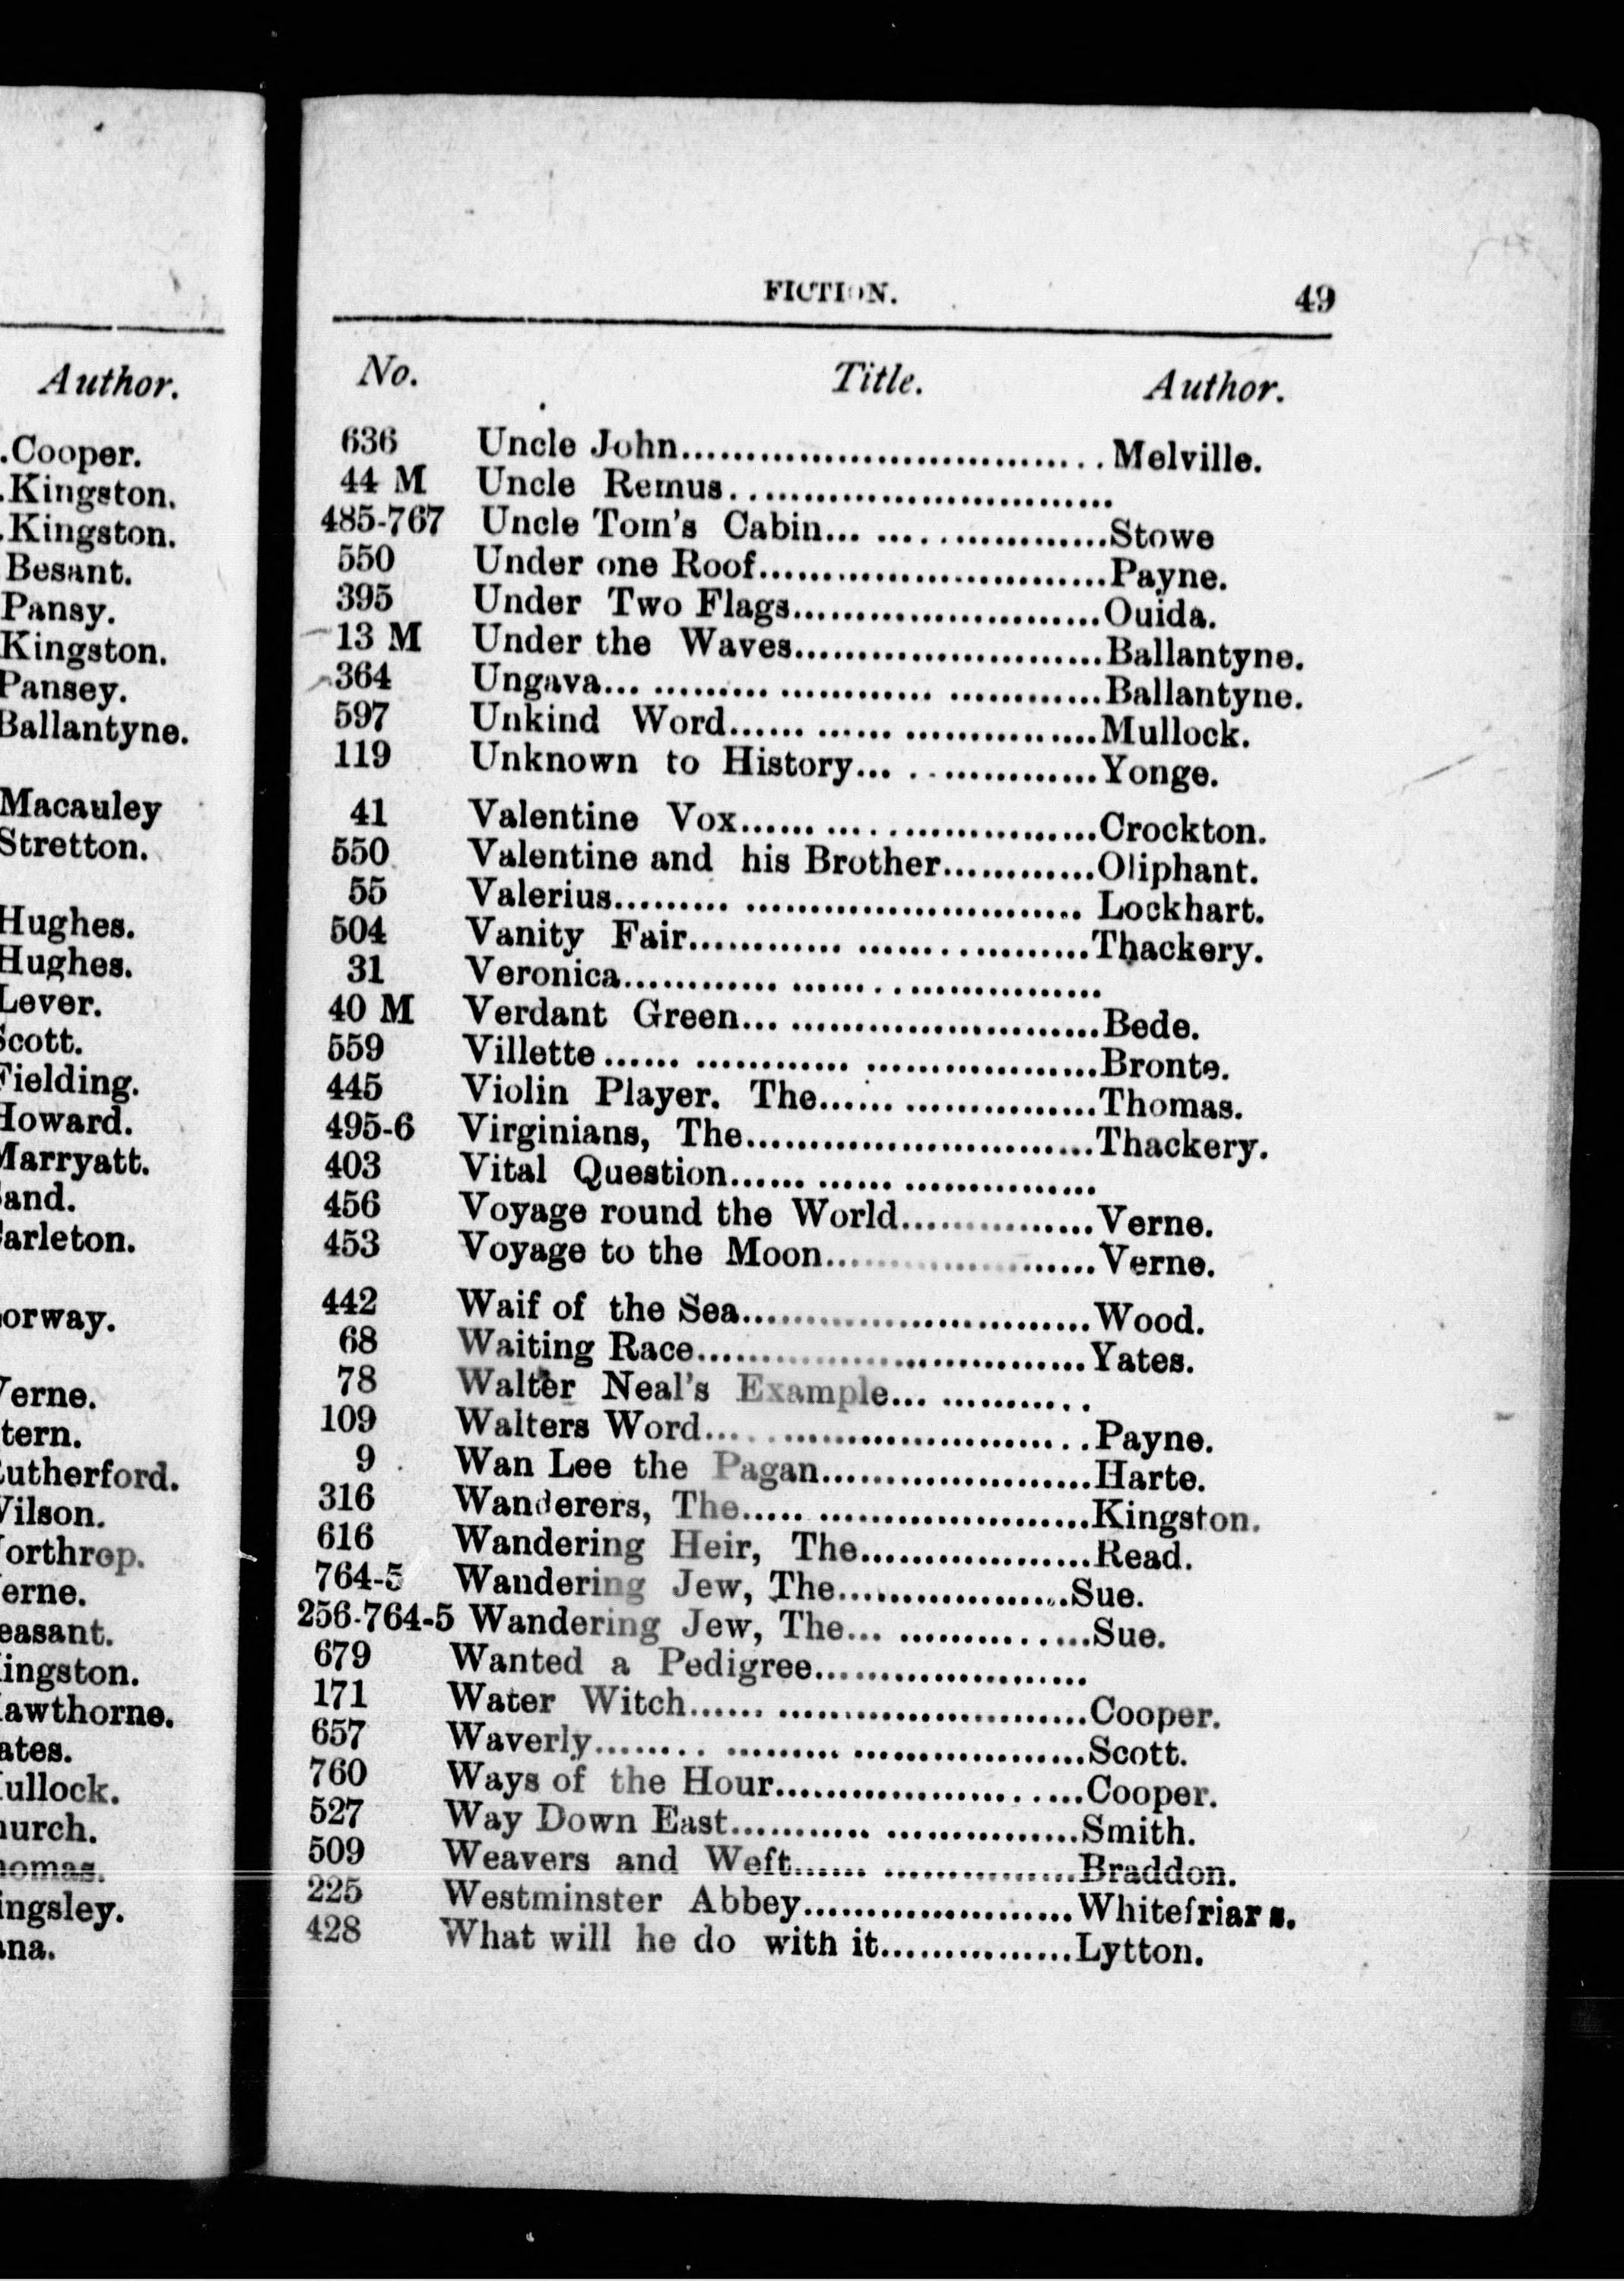 Author.
.Cooper.
.Kingston.
.Kingston.
Besant.
Pansy.
Kingston.
Pansey.
Ballantyne.
Macauley
Stretton.
Hughes.
Hughes.
Lever.
Scott.
Fielding.
Howard.
Marryatt.
Sand.
Carleton.
orway.
Verne.
tern.
Rutherford.
Wilson.
Northrop.
erne.
easant.
ingston.
awthorne.
ates.
ullock.
hurch.
homas.
ingsley.
ana.
FICTION. 49
No. Title. Author.
636 Uncle John.................................Melville.
44 M Uncle Remus..............................
485-767 Uncle Tom's Cabin... ......................Stowe
550 Under one Roof...........................Payne.
395 Under Two Flags........................Ouida.
13 M Under the Waves........................Ballantyne.
364 Ungava... ......... ............ ............Ballantyne.
597 Unkind Word...... ...... ...............Mullock.
119 Unknown to History... ...............Yonge.
41 Valentine Vox...... ......................Crockton.
550 Valentine and his Brother............Oliphant.
55 Valerius......... .......................... Lockhart.
504 Vanity Fair............ ...................Thackery.
31 Veronica............ ...... .................
40 M Verdant Green... ........................Bede.
559 Villette...... ............ ...................Bronte.
445 Violin Player. The...... ...............Thomas.
495-6 Virginians, The...........................Thackery.
403 Vital Question...... ...... ...............
456 Voyage round the World...............Verne.
453 Voyage to the Moon.....................Verne.
442 Waif of the Sea...........................Wood.
68 Waiting Race..............................Yates.
78 Walter Neal's Example... ............
109 Walters Word..............................Payne.
9 Wan Lee the Pagan.....................Harte.
316 Wanderers, The..... .....................Kingston.
616 Wandering Heir, The..................Read.
764-5 Wandering Jew, The..................Sue.
256-764-5 Wandering Jew, The... ...............Sue.
679 Wanted a Pedigree.....................
171 Water Witch...... ........................Cooper.
657 Waverly........ ......... ..................Scott.
760 Ways of the Hour........................Cooper.
527 Way Down East........... ...............Smith.
509 Weavers and Weft...... ...............Braddon.
225 Westminster Abbey.....................Whitefriars.
428 What will he do with it...............Lytton.